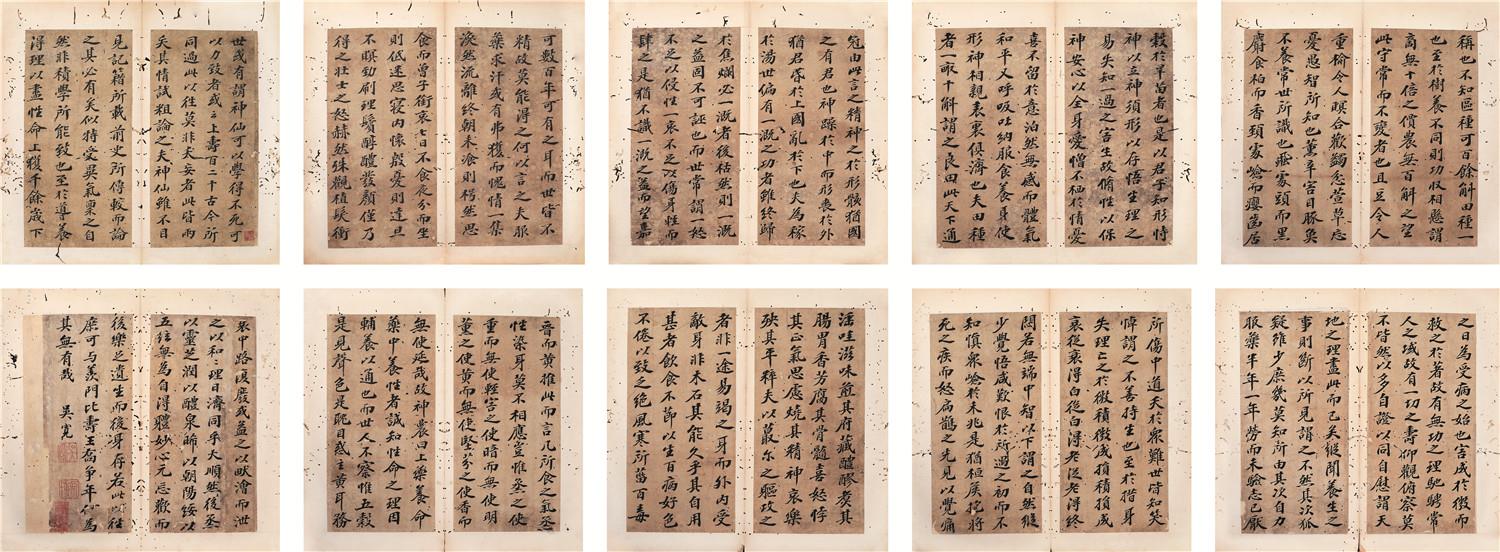 世或有謂神仙可以學得不死可
以力致者或云上壽百二十古今所
同過此以往莫非夭妄者此皆兩
失其情試粗論之夫神仙雖不目
見記籍所載前史所傳較而論
之其必有矣似特受異氣稟之自
然非積學所能致也至於導養
得理以盡性命上獲千餘歲下
可數百年可有之耳而世皆不
精故莫能得之何以言之夫服
藥求汗或有弗獲而愧情一集
渙然流離終朝未飡則枵然思
食而曾子銜哀七日不食夜分而坐
則低迷思寢內懷殷憂則達旦
不瞑勁刷理鬢醇醴發顏僅乃
得之壯士之怒赫然殊觀植髮衝
冠由此言之精神之於形骸猶國
之有君也神躁於中而形喪於外
猶君昏於上國亂於下也夫為稼
於湯世偏有一溉之功者雖終歸
於焦爛必一溉者後枯然則一溉
之益固不可誣也而世常謂一怒
不足以侵性一哀不足以傷身輕而
肆之是猶不識一溉之益而望嘉
穀於旱苗者也是以君子知形恃
神以立神須形以存悟生理之
易失知一過之害生故脩性以保
神安心以全身愛憎不栖於情憂
喜不留於意泊然無感而體氣
和平又呼吸吐納服食養身使
形神相親表裏俱濟也夫田種
者一畝十斛謂之良田此天下通
稱也不知區種可百餘斛田種一
也至於樹養不同則功收相懸謂
商無十倍之價農無百斛之望
此守常而不變者也且豆令人
重榆令人瞑合歡蠲忿萱草忘
憂愚智所知也薰辛害目豚魚
不養常世所識也虱處頭而黑
麝食柏而香頸處險而癭齒居
晉而黃推此而言凡所食之氣蒸
性染身莫不相應豈惟蒸之使
重而無使輕害之使暗而無使明
薰之使黃而無使堅芬之使香而
無使延哉故神農曰上藥養命
藥中養性者誠知性命之理因
輔養以通也而世人不察惟五穀
是見聲色是耽目惑玄黃耳務
淫哇滋味煎其府藏醴醪煑其
腸胃香芳腐其骨髓喜怒悖
其正氣思慮燒其精神哀樂
殃其平粹夫以蕞爾之軀攻之
者非一途易竭之身而外內受
敵身非木石其能久乎其自用
甚者飲食不節以生百病好色
不倦以致乏絕風寒所菑百毒
所傷中道夭於眾難世皆知笑
悼謂之不善持生也至於措身
失理亡之於微積微成損積損成
衰從衰得白從白得老從老得終
悶若無端中智以下謂之自然縱
少覺悟咸歎恨於所遇之初而不
知慎眾險於未兆是猶桓侯抱將
死之疾而怒扁鵲之先見以覺痛
之日為受病之始也害成於微而
救之於著故有無功之理馳騁常
人之域故有一切之壽仰觀俯察莫
不皆然以多自證以同自慰謂天
地之理盡此而已矣縱聞養生之
事則斷以所見謂之不然其次狐
疑雖少庶幾莫知所由其次自力
服藥半年一年勞而未驗志已厭
衰中路復廢或益之以畎澮而泄
之以和理日濟同乎大順然後蒸
以靈芝潤以醴泉晞以朝陽綏以
五絃無為自得體妙心元忘歡而
後樂足遺生而後身存若此以往
庶可與羨門比壽王喬爭年何為
其無有哉 吳寬